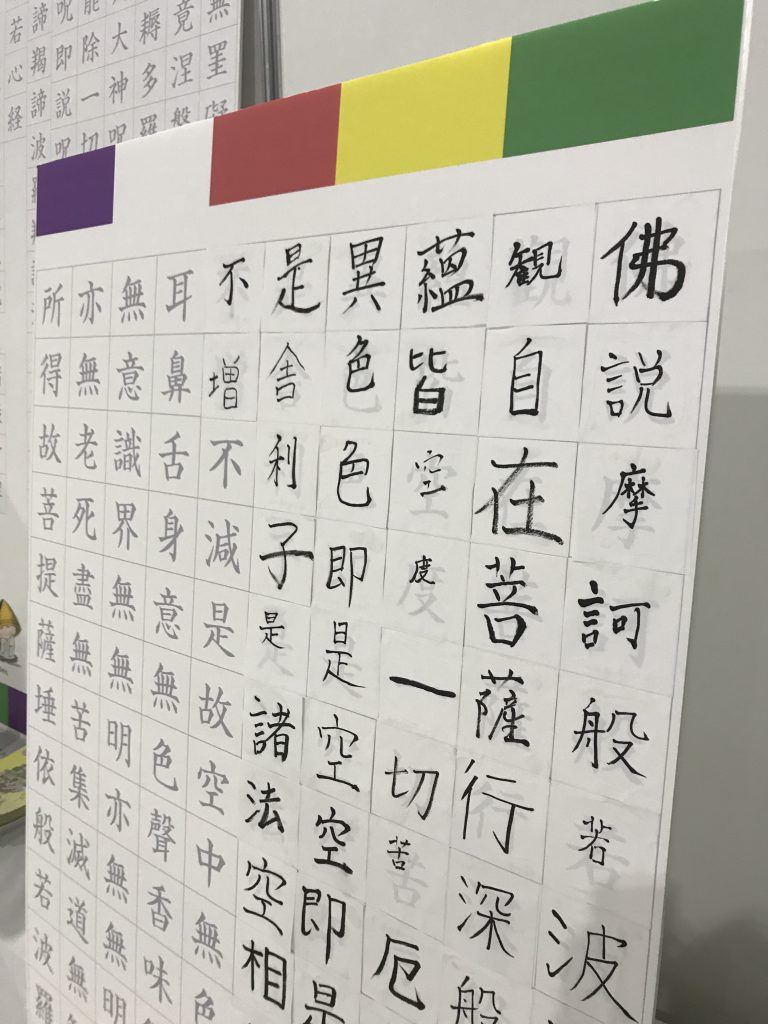 佛説摩訶般若波
観自在菩薩行深般
蘊皆空度一切苦厄
異色色即是空空即是
是舎利子是諸法空相
不増不減是故空中無色
耳鼻舌身意無色聲香味
無意識界無無明亦無無明
亦無老死盡無苦集滅道無
所得故菩提薩埵依般若波羅
無罣礙
竟涅
耨多羅
大神呪
能除一切
呪即説呪
諦羯諦波羅
若心経